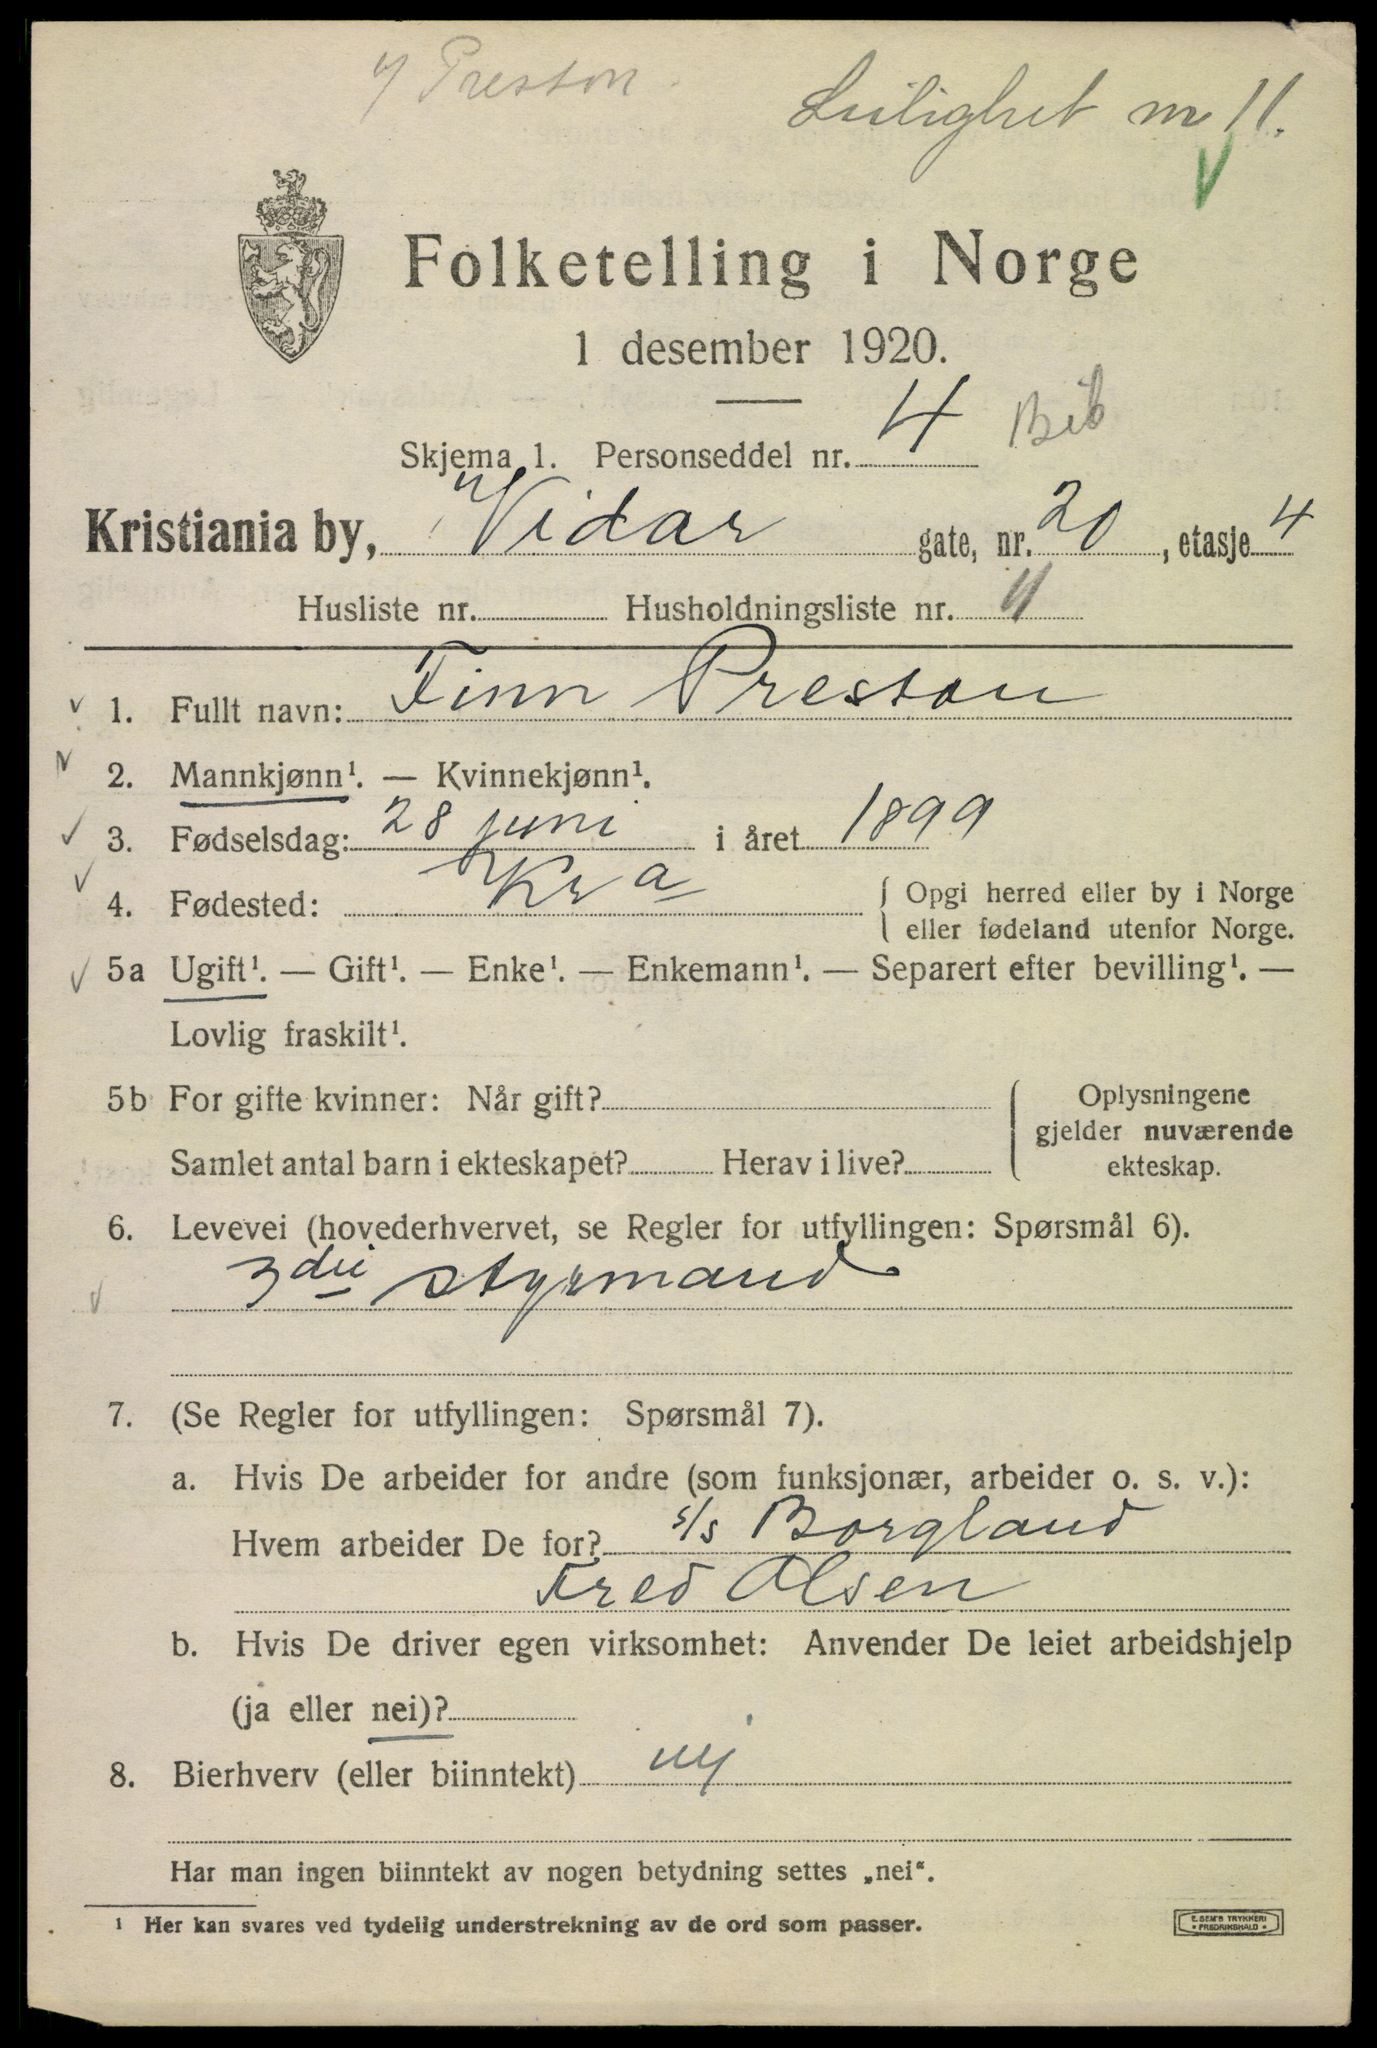 y Preston.
Leilighet nr 11.
Folketelling i Norge
1 desember 1920.
Skjema 1. Personseddel nr. 4 Bib
Kristiania by, Vidar gate, nr. 20, etasje 4
Husliste nr. Husholdningsliste nr. 11
1. Fullt navn: Finn Preston
2. Mannkjønn¹. — Kvinnekjønn¹.
3. Fødselsdag: 28 juni i året 1899
4. Fødested: Kra { Opgi herred eller by i Norge
eller fødeland utenfor Norge.
5a Ugift¹. — Gift¹. — Enke¹. — Enkemann¹. — Separert efter bevilling¹. —
Lovlig fraskilt¹.
5b For gifte kvinner: Når gift? Oplysningene
gjelder nuværende
Samlet antal barn i ekteskapet? Herav i live? ekteskap.
6. Levevei (hovederhvervet, se Regler for utfyllingen: Spørsmål 6).
3die styrmand
7. (Se Regler for utfyllingen: Spørsmål 7).
a. Hvis De arbeider for andre (som funksjonær, arbeider o. s. v.):
Hvem arbeider De for? s/s Borgland
Fred Olsen
b. Hvis De driver egen virksomhet: Anvender De leiet arbeidshjelp
(ja eller nei)?
8. Bierhverv (eller biinntekt) nej
Har man ingen biinntekt av nogen betydning settes „nei“.
¹ Her kan svares ved tydelig understrekning av de ord som passer.
E. SEM'S TRYKKERI
• FREDRIKSHALD •